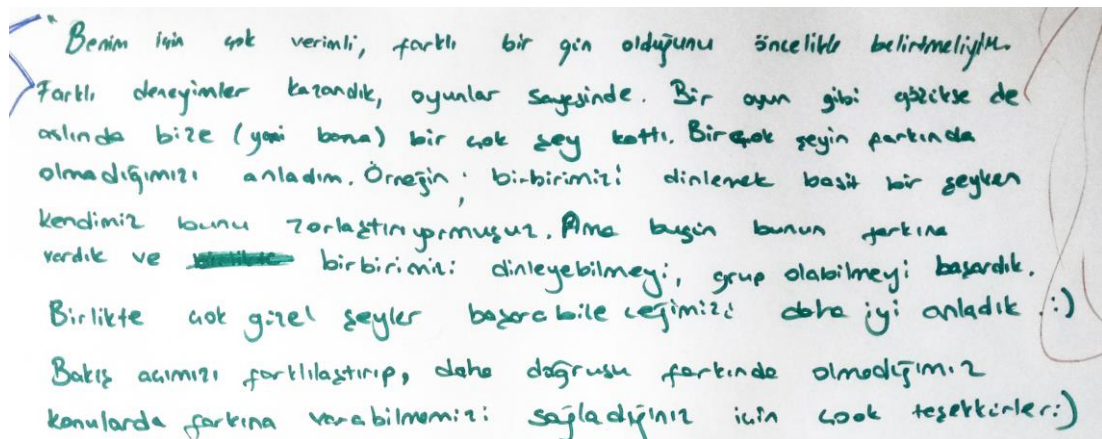 " Benim için çok verimli, farklı bir gün olduğunu öncelikle belirtmeliyim.
Farklı deneyimler kazandık, oyunlar sayesinde. Bir oyun gibi gözükse de
aslında bize (yani bana) bir çok şey kattı. Birçok şeyin farkında
olmadığımızı anladım. Örneğin; birbirimizi dinlemek basit bir şeyken
kendimiz bunu zorlaştırıyormuşuz. Ama bugün bunun farkına
vardık ve birbirimizi dinleyebilmeyi, grup olabilmeyi başardık.
Birlikte çok güzel şeyler başarabileceğimizi daha iyi anladık :)
Bakış açımızı farklılaştırıp, daha doğrusu farkında olmadığımız
konularda farkına varabilmemizi sağladığınız için çook teşekkürler:)